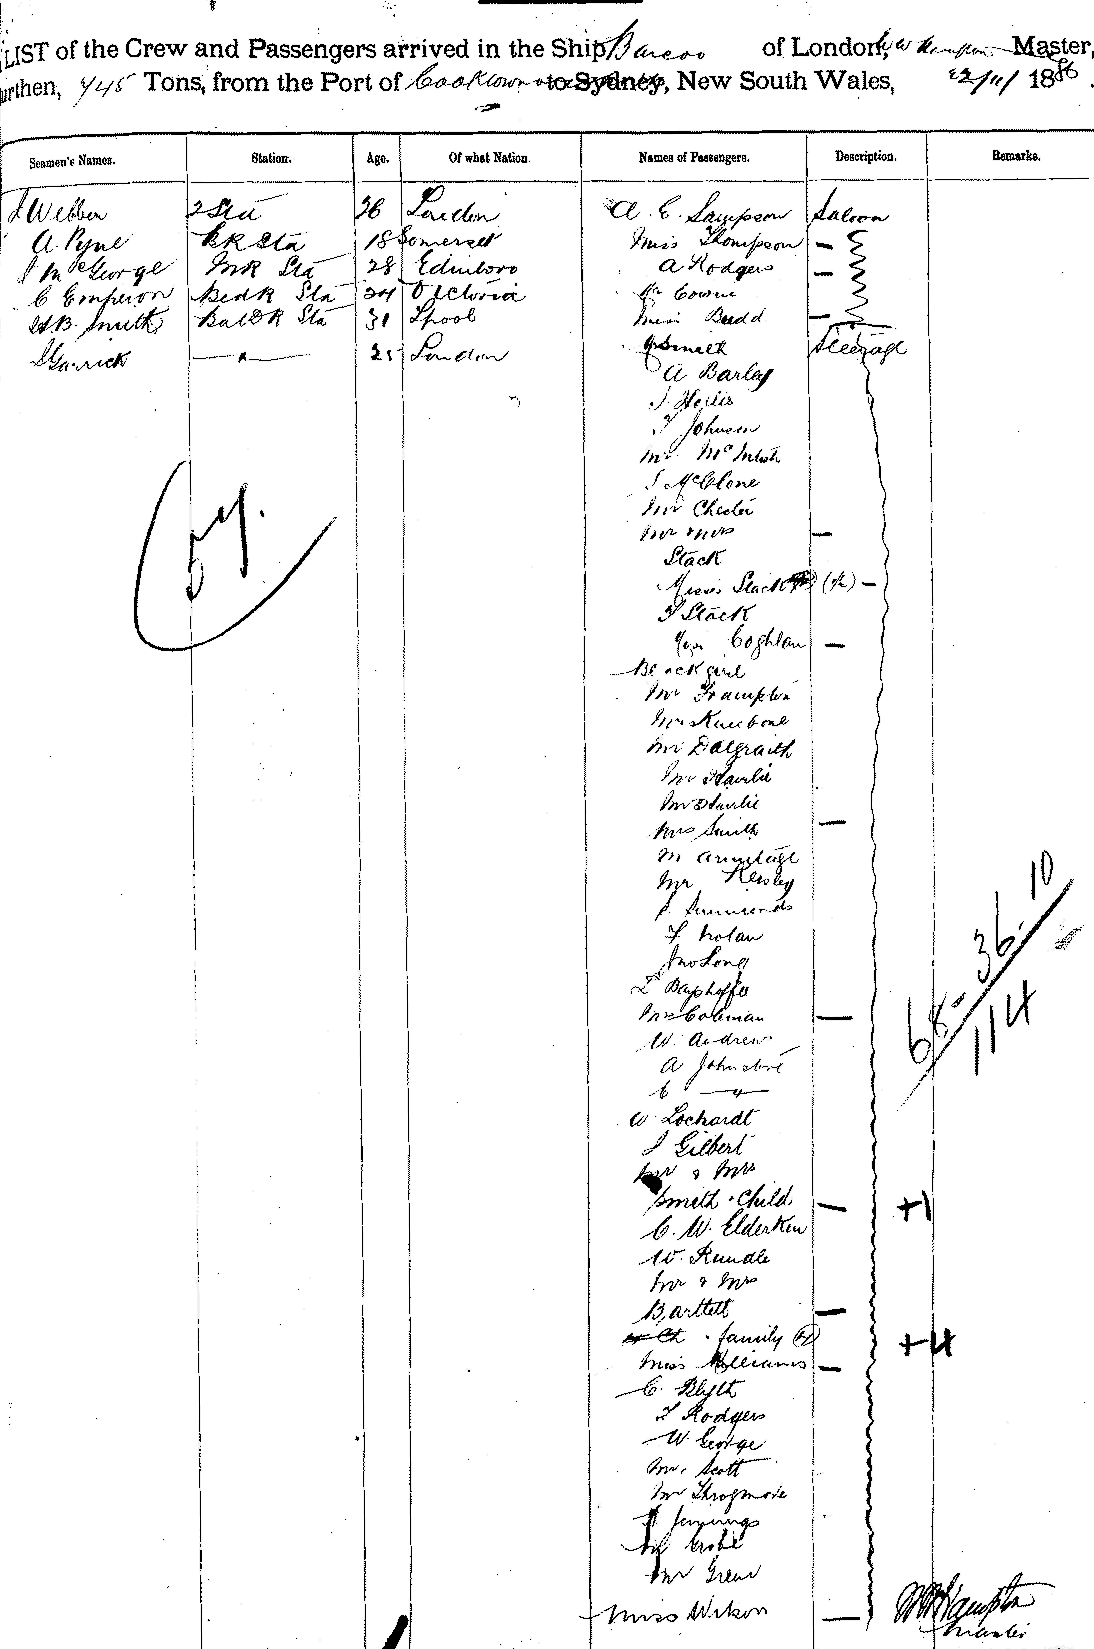 LIST of the Crew and Passengers arrived in the Ship Barcoo of London, Master,
Burthen, 745 Tons, from the Port of Cooktown to Sydney, New South Wales, 22/11/ 1886.
Seamen's Names. Station. Age. Of what Nation. Names of Passengers. Description. Remarks.
J Webber 2 Std 26 London A. E. Sampson Saloon
A. Pyne Std 18 Somerset Miss Thompson —
J McGeorge Std 28 Edinboro A Rodgers —
C Emperon BedR Std 24 Victoria Mr Cowne
H B. Smith Std 31 Lpool Miss Budd —
Garrick — " — 25 London Smith Steerage
A Barley
J
J Johnson
Mr McIntosh
J McClone
Mr Chester
Mr & Mrs —
Stack
59.
Misses Stack (2) —
J Stack
Coghlan —
Black girl
Mr Frampton
Mr Kneebone
Mr Dalgraith
Mr
Mr
Mrs Smith —
M Armitage
Mr Kersley
Simmonds
J Nolan
Jno Long
Mrs Coleman —
W. Andrew
A Johnstone
C — " —
W. Lochardt
J Gilbert
Mr & Mrs
Smith & Child — +1
C. W. Elderken
W. Rundle
Mr & Mrs
Bartlett —
& family (4) +4
Miss Williams —
C. Blyth
J Rodgers
W George
Mr. Scott
Mr Throgmore
Jennings
Mr Green
Miss Wilson —
68 - 36 - 10
114
W Hampton
Master